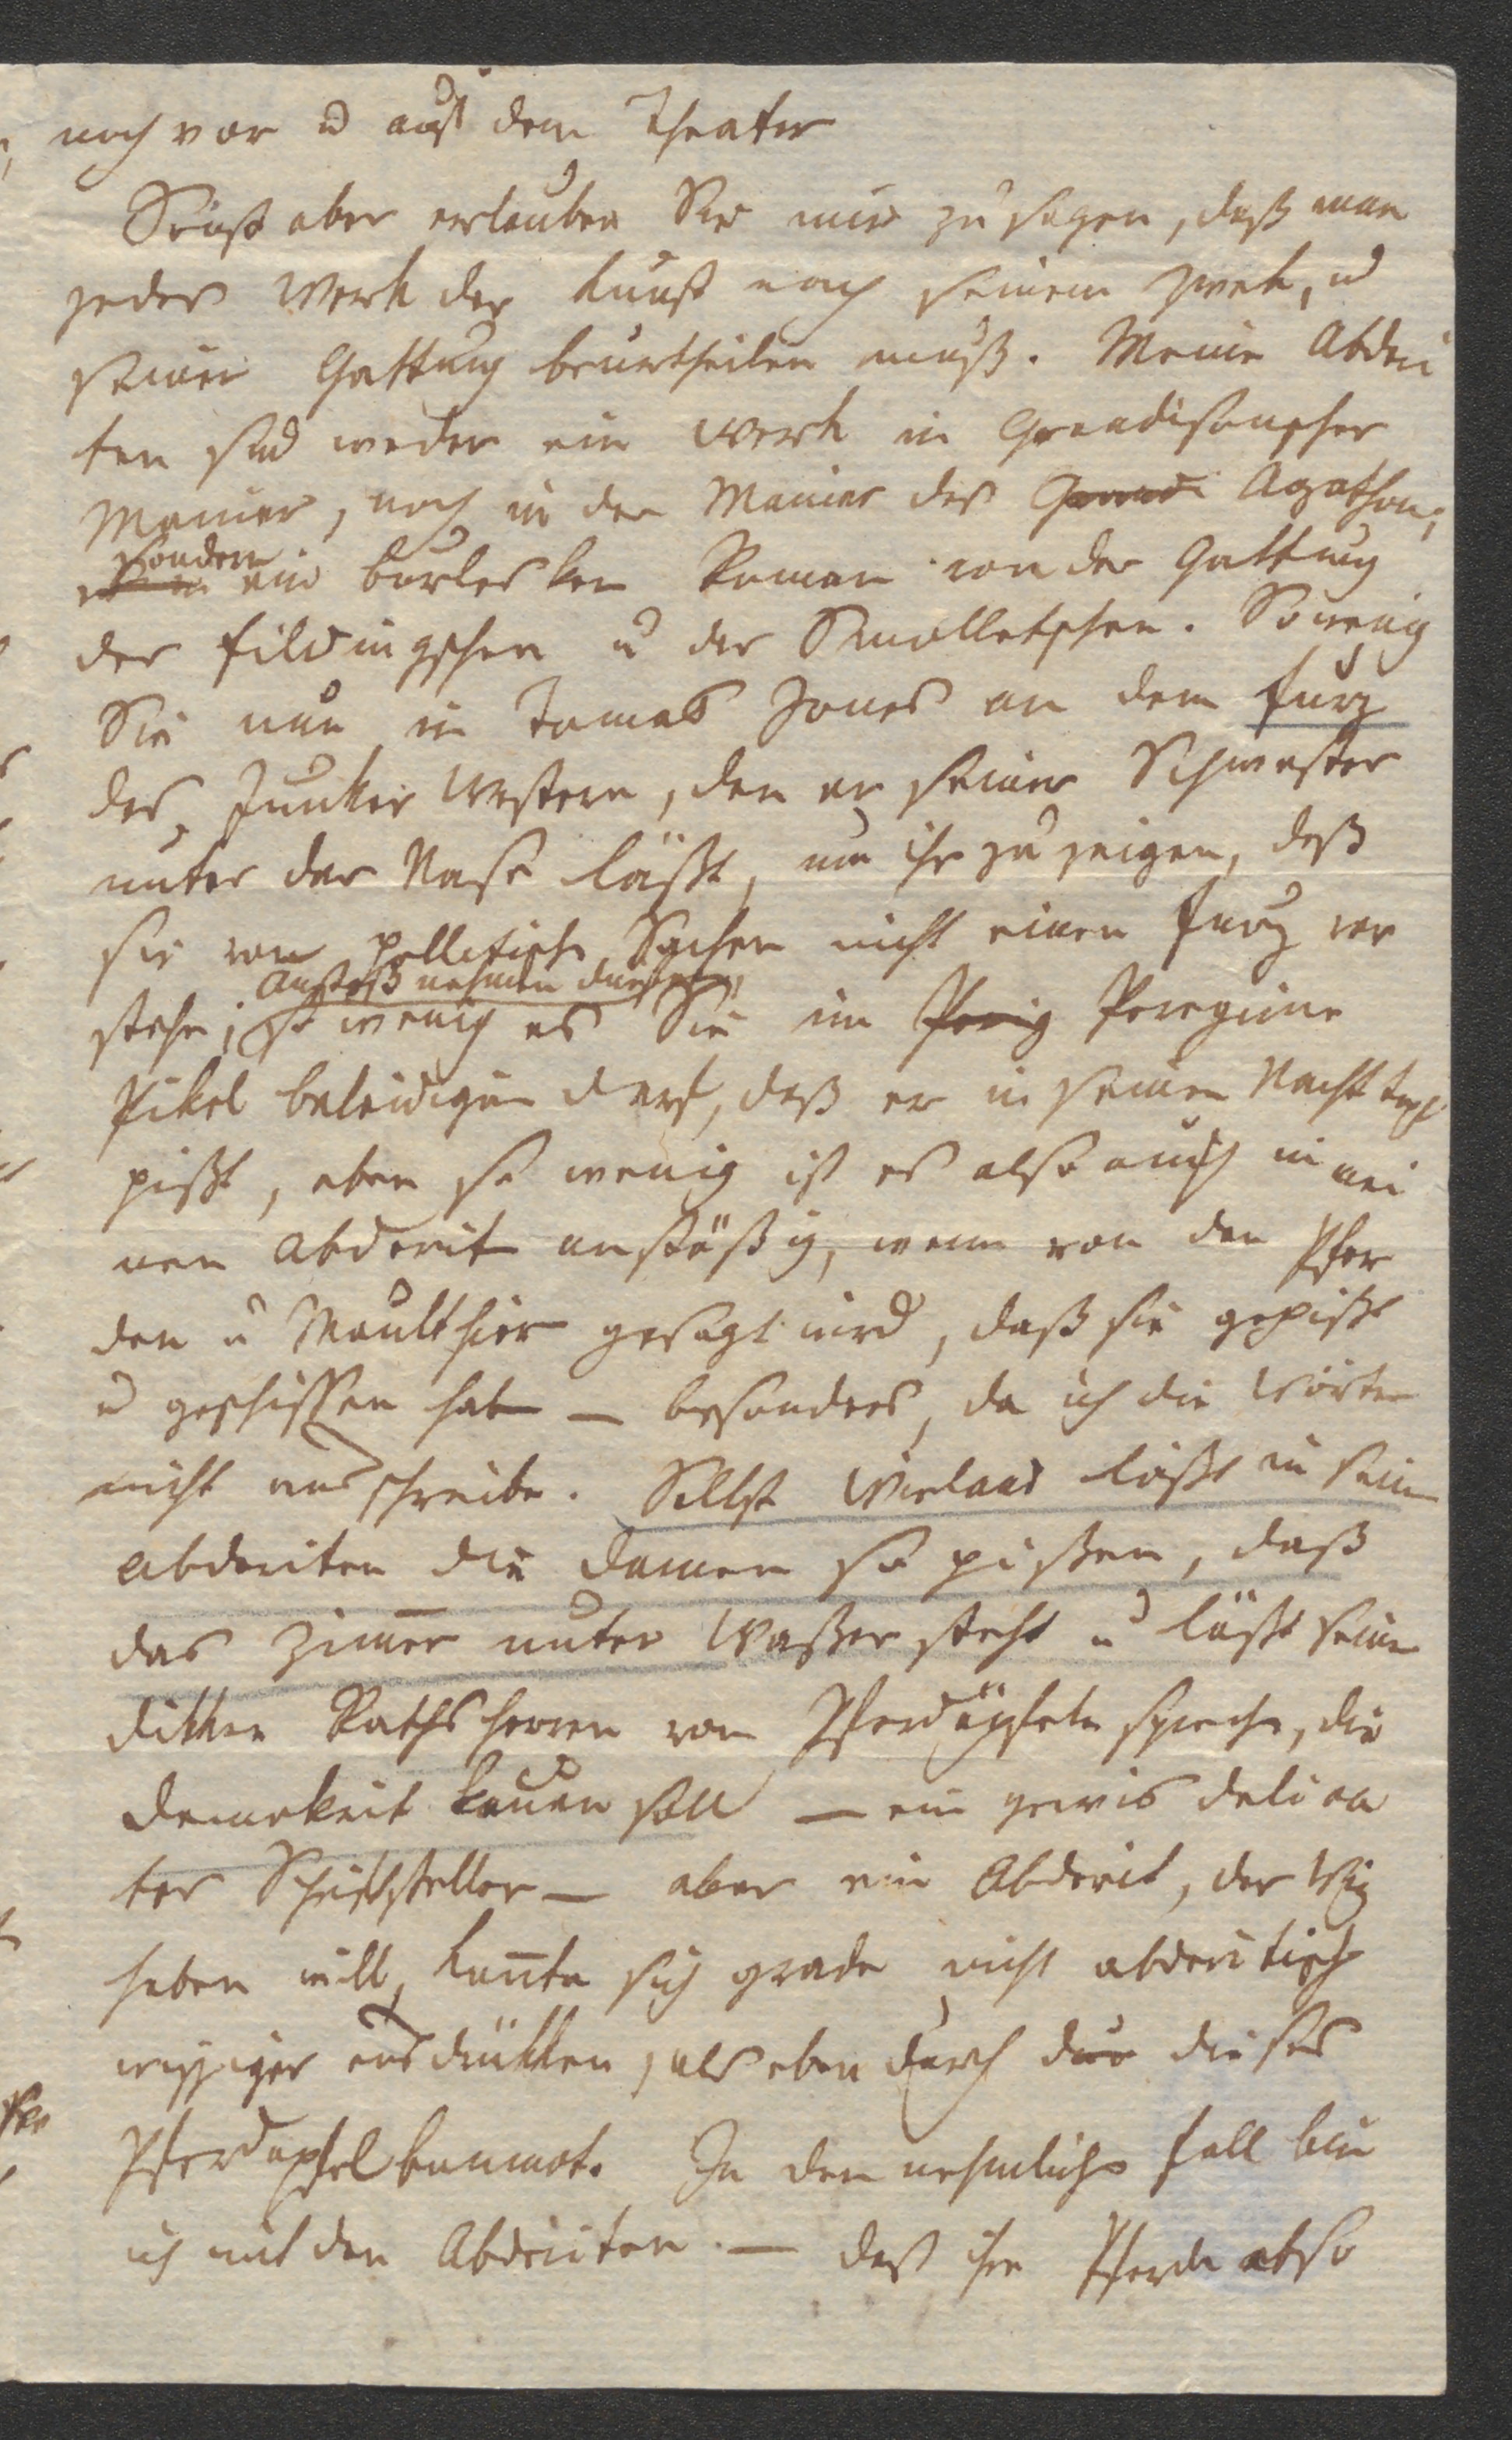 noch vor u auf dem Theater
Sonst aber erlauben Sie mir zu sagen, daß man
jedes Werk der Kunst nach seinem Zwek, u
seiner Gattung beurtheilen muß. Meine Abderi
ten sind weder ein Werk in Grandisonscher
Manier, noch in der Manier des Grandi Agathon;
sondern
ein burlesker Roman von der Gattung
der Fildingschen u der Smolletschen. So wenig
Sie nun in Tomas Jones an dem Furz
des Junker Western, den er seiner Schwester
unter der Nase läßt, um ihr zu zeigen, daß
sie von pollitisch Sachen nicht einen Furz ver
Anstoß nehmen durften,
stehe; so wenig es Sie im Perig Peregrine
Pikel beleidigen darf, daß er in seinen Nachttopf
pißt, eben so wenig ist es also auch in mei
nen Abderit anstößig, wenn von den Pfer
den u Maulthier gesagt wird, daß sie gepißt
u geschissen hab – besonders, da ich die Wörter
nicht ausschreibe. Selbst Wieland läßt in sein
Abderiten die Damen so pißen, daß
das Zimer unter Waßer steht u läßt seine
dikken Rathsherren von Pferdäpfeln spreche, die
Demokrit kauen soll – ein gewis delica
ter Schriftsteller – aber ein Abderit, der Witz
haben will, kante sich grade nicht abderitisch
wizziger ausdrükken, als eben durch das dieses
Pferdapfelbonmot. In den nehmliche Fall bin
ich mit den Abderiten. – Daß ihre Pferde abso